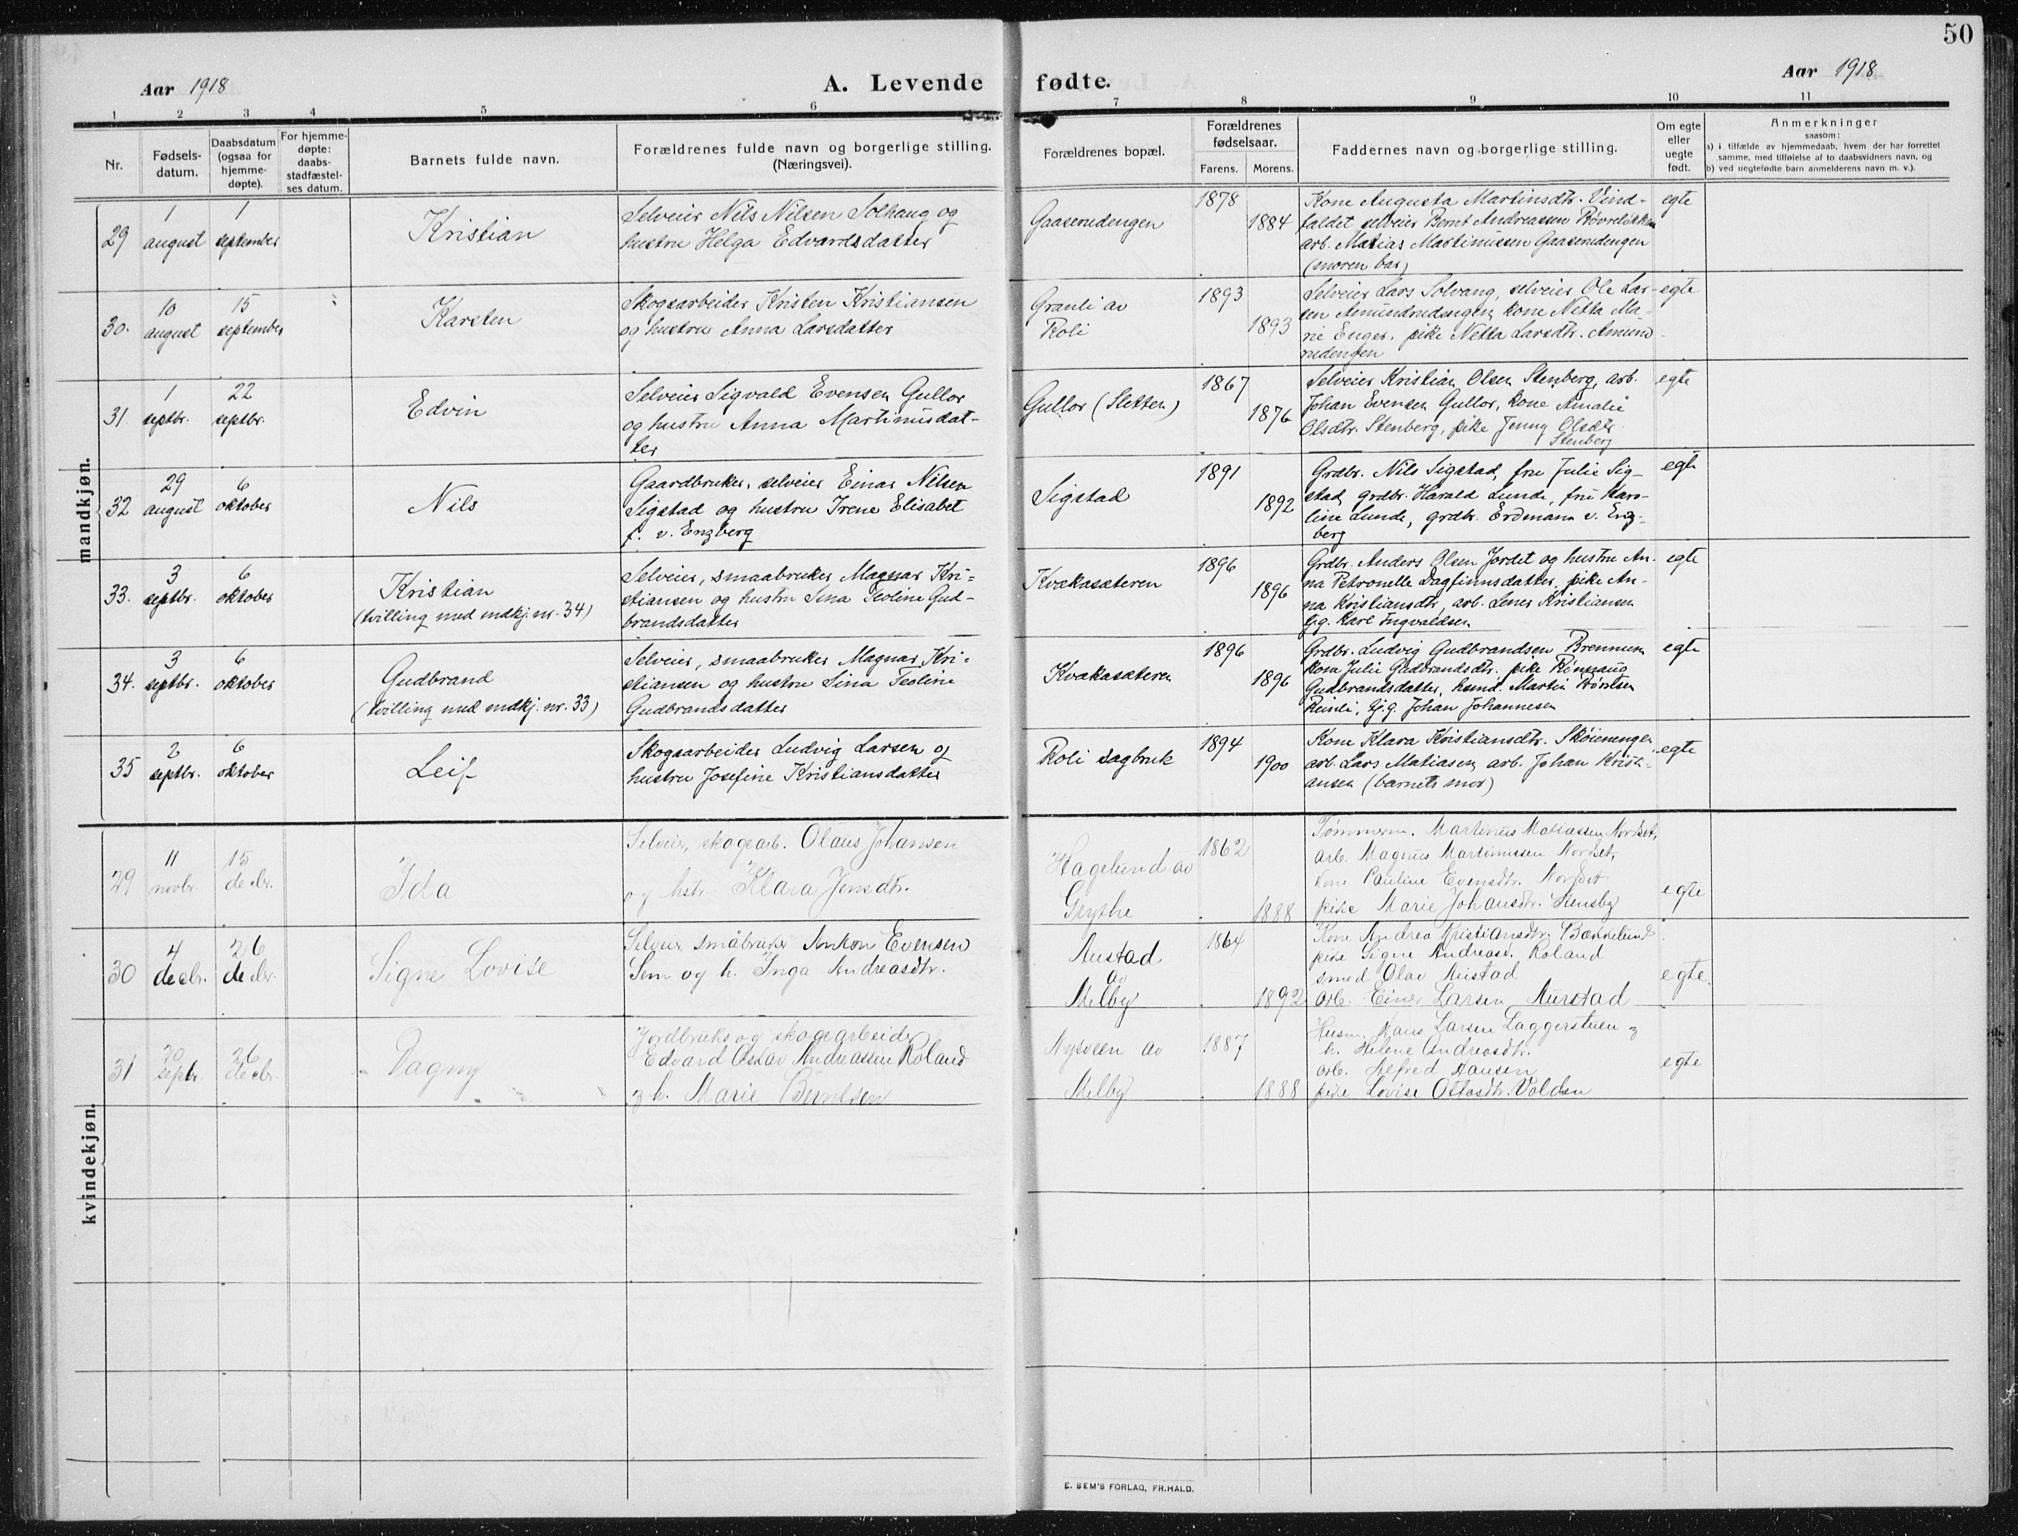 50
Aar 1918
A. Levende fødte.
Aar 1918
1 2 3 4 5 6 7 8 9 10 11
Nr.
Fødsels-
datum.
Daabsdatum
(ogsaa for
hjemme-
døpte).
For hjemme-
døpte:
daabs-
stadfæstel-
ses datum.
Barnets fulde navn.
Forældrenes fulde navn og borgerlige stilling.
(Næringsvei).
Forældrenes bopæl.
Forældrenes
fødselsaar.
Farens. Morens.
Faddernes navn og borgerlige stilling.
Om egte
eller
uegte
født.
Anmerkninger
saasom:
a) i tilfælde av hjemmedaab, hvem der har forrettet
samme, med tilføielse af to daabsvidners navn, og
b) ved uegtefødte barn anmelderens navn (m. v.).
mandkjøn.
29
1
august
1
september
Kristian
Selveier Nils Nilsen Solhaug og
hustru Helga Edvardsdatter
Gaaserudengen
1878
1884
Kone Augusta Martinsdtr. Vind-
faldet selveier Bernt Andreassen
arb. Matias Martinussen Gaaserudengen
(moren bar)
egte
30.
10
august
15
september
Karsten
Skogsarbeider Kristen Kristiansen
og hustru Anna Larsdatter
Granli av
Roli
1893
1893
Selveier Lars Solvang, selveier Ole Lar-
sen Amundrudengen, kone Netta Ma-
rie Enger, pike Netta Larsdtr. Amund-
rudengen
egte
31.
1
septbr.
22
septbr.
Edvin
Selveier Sigvald Evensen Gullor
og hustru Anna Martinusdat-
ter
Gullor (Sletten)
1867
1876
Selveier Kristian Olsen Stenberg, arb.
Johan Evensen Gullor, kone Amalie
Olsdtr. Stenberg, pike Jenny Olsdtr.
Stenberg
egte
32
29
august
6
oktober
Nils
Gaardbruker, selveier Einar Nilsen
Sigstad og hustru Irene Elisabet
f. v. Enzberg
Sigstad
1891
1892
Grdbr. Nils Sigstad, fru Julie Sig-
stad, grdbr. Harald Lunde, fru Karo-
line Lunde, grdbr. Erdmann v. Enz-
berg
egte
33.
3
septbr.
6
oktober
Kristian
(tvilling med mdkj. nr. 34)
Selveier, smaabruker Magnar Kri-
stiansen og hustru Sina Teoline Gud-
brandsdatter
Kvækasæteren
1896
1896
Grdbr. Anders Olsen Jordet og hustru An-
na Petronelle Dagfinnsdatter, pike An-
na Kristiansdtr, arb. Lener Kristiansen
Gg. Karl Ingvaldsen
egte
34.
3
septbr.
6
oktober
Gudbrand
(tvilling med mdkj. nr. 33)
Selveier, smaabruker Magnar Kri-
stiansen og hustru Sina Teoline
Gudbrandsdatter
Kvækasæteren
1896
1896
Grdbr. Ludvig Gudbrandsen Brennum
kone Julie Gudbrandsdtr. pike
Gudbrandsdatter, husmd. Martin
Johan Johannesen
egte
35
2
septbr.
6
oktober
Leif
Skogsarbeider Ludvig Larsen og
hustru Josefine Kristiansdatter
Roli sagbruk
1894
1900
Kone Klara Kristiansdtr. Skoienengen
arb. Lars Matiasen arb. Johan Kristi-
ansen (barnets mor)
egte
kvindekjøn.
29
11
novbr.
15
decbr.
Ida
Selveier, skogsarb. Olaus Johansen
og hstr. Klara Jensdtr.
Hagelund av
Grythe
1862
1888
Tømmerm. Martinus Matiassen Nordset,
arb. Magnus Martinussen Nordset,
Kone Pauline Evensdtr. Nordset
pike Marie Johansdtr. Stensby
egte
30
4
decbr.
26
decbr
Signe Lovise
Selveier, småbruker Anton Evensen
og h. Inga Andreasdtr.
Austad
av
Melby
1864
1892
Kone Andrea Kristiansdtr. Bækkelund
pike Signe Andreasd. Roland
smed Olav Austad
arb. Einar Larsen Aurstad
egte.
31
20
septbr.
26
decbr.
Dagny
Jordbruks og skogsarbeider
Edvard Oskar Andreassen Roland
og h. Marie Berntsen
Nysveen av
Melby
1887
1888
Husm. Hans Larsen Laggerstuen og
h. Helene Andreasdtr.
arb. Alfred Hansen
pike Lovise Ottosdtr. Volden
egte
E. SEM'S FORLAG, FR.HALD.